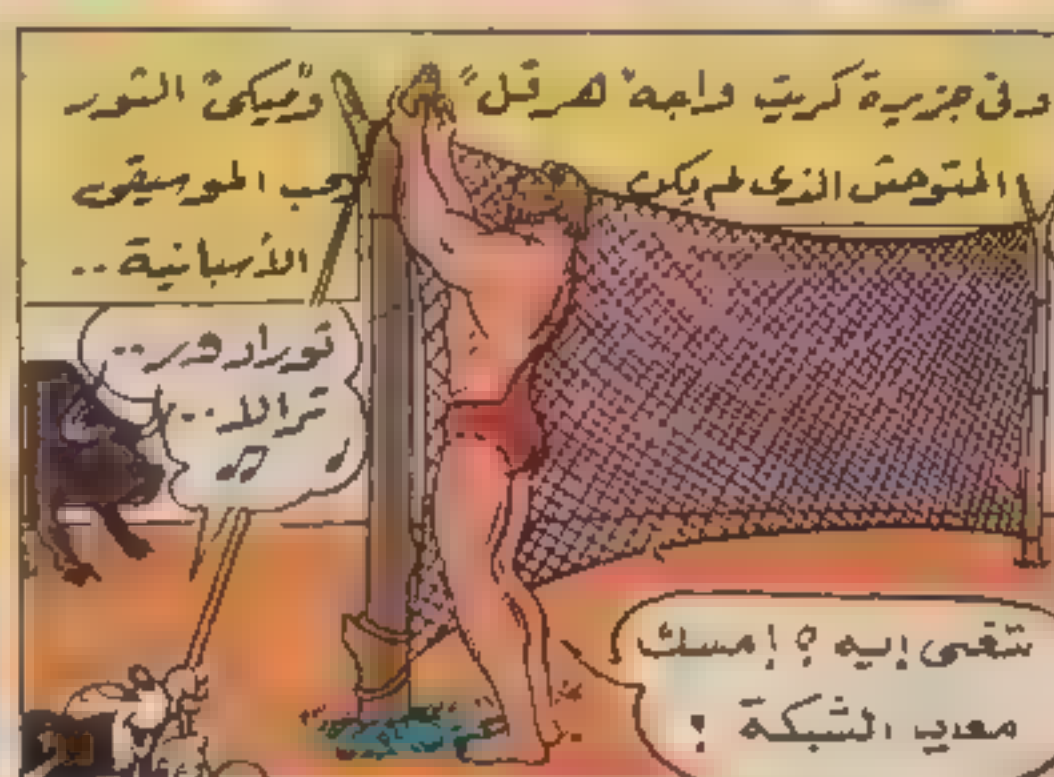 وفى جزيرة كريت واجه "هرقل" و"ميكى" الثور
المتوحش الذى لم يكن يحب الموسيقى
الأسبانية ..
تورادور ..
ترالا ..
تتغنى إيه ؟ إمسك
معايا الشبكة !